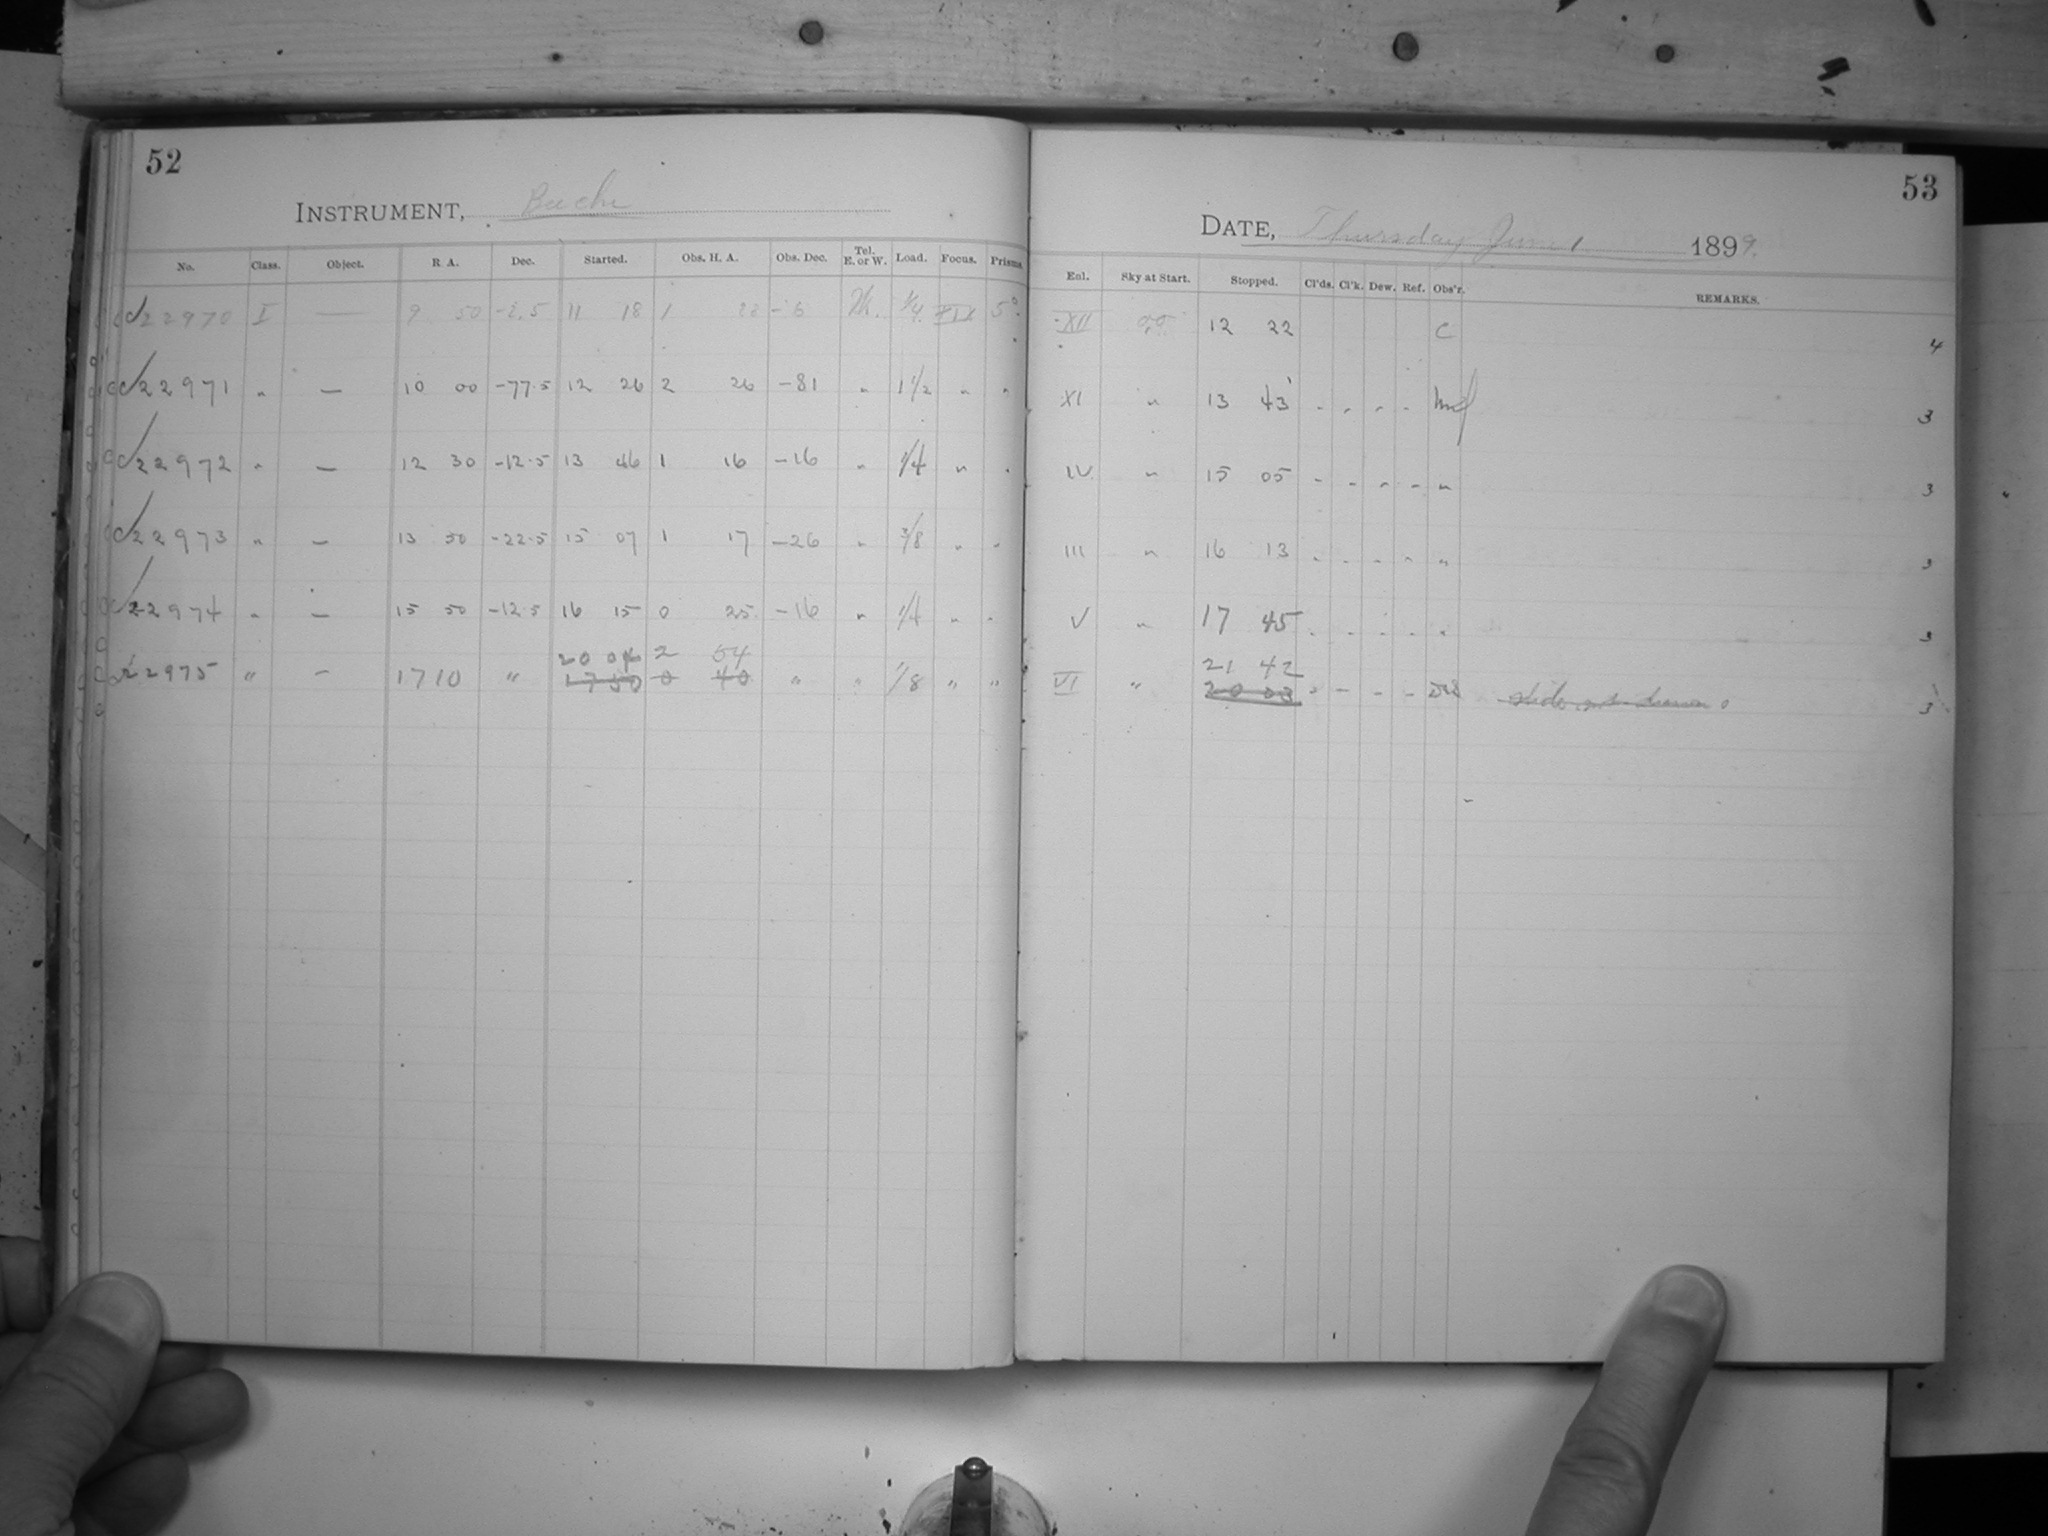 52
INSTRUMENT, Bache
No. Class. Object. R. A. Dec. Started. Obs. H. A. Obs. Dec. Tel. E. or W. Load. Focus. Prisms
22970 I — 9 50 -2.5 11 18 1 22 -6 W. 1/4 5°
22971 " — 10 00 -77.5 12 26 2 26 -81 " 1 1/2 " "
22972 " — 12 30 -12.5 13 46 1 16 -16 " 1/4 " "
22973 " — 13 50 -22.5 15 07 1 17 -26 " 3/8 " "
22974 " — 15 50 -12.5 16 15 0 25 -16 " 1/4 " "
20 04 2 54
22975 " — 17 10 " 17 50 0 40 " " 1/8 " "
53
DATE, Thursday June 1 1899.
Sky at Start. Stopped. Cl'ds. Cl'k. Dew. Ref. Obs'r. REMARKS.
XII 12 22 C 4
XI " 13 43 " " " " 3
IV " 15 05 " " " " " 3
III " 16 13 " " " " " 3
V " 17 45 " " " " " 3
21 42
VI " 20 03 " " " " 3